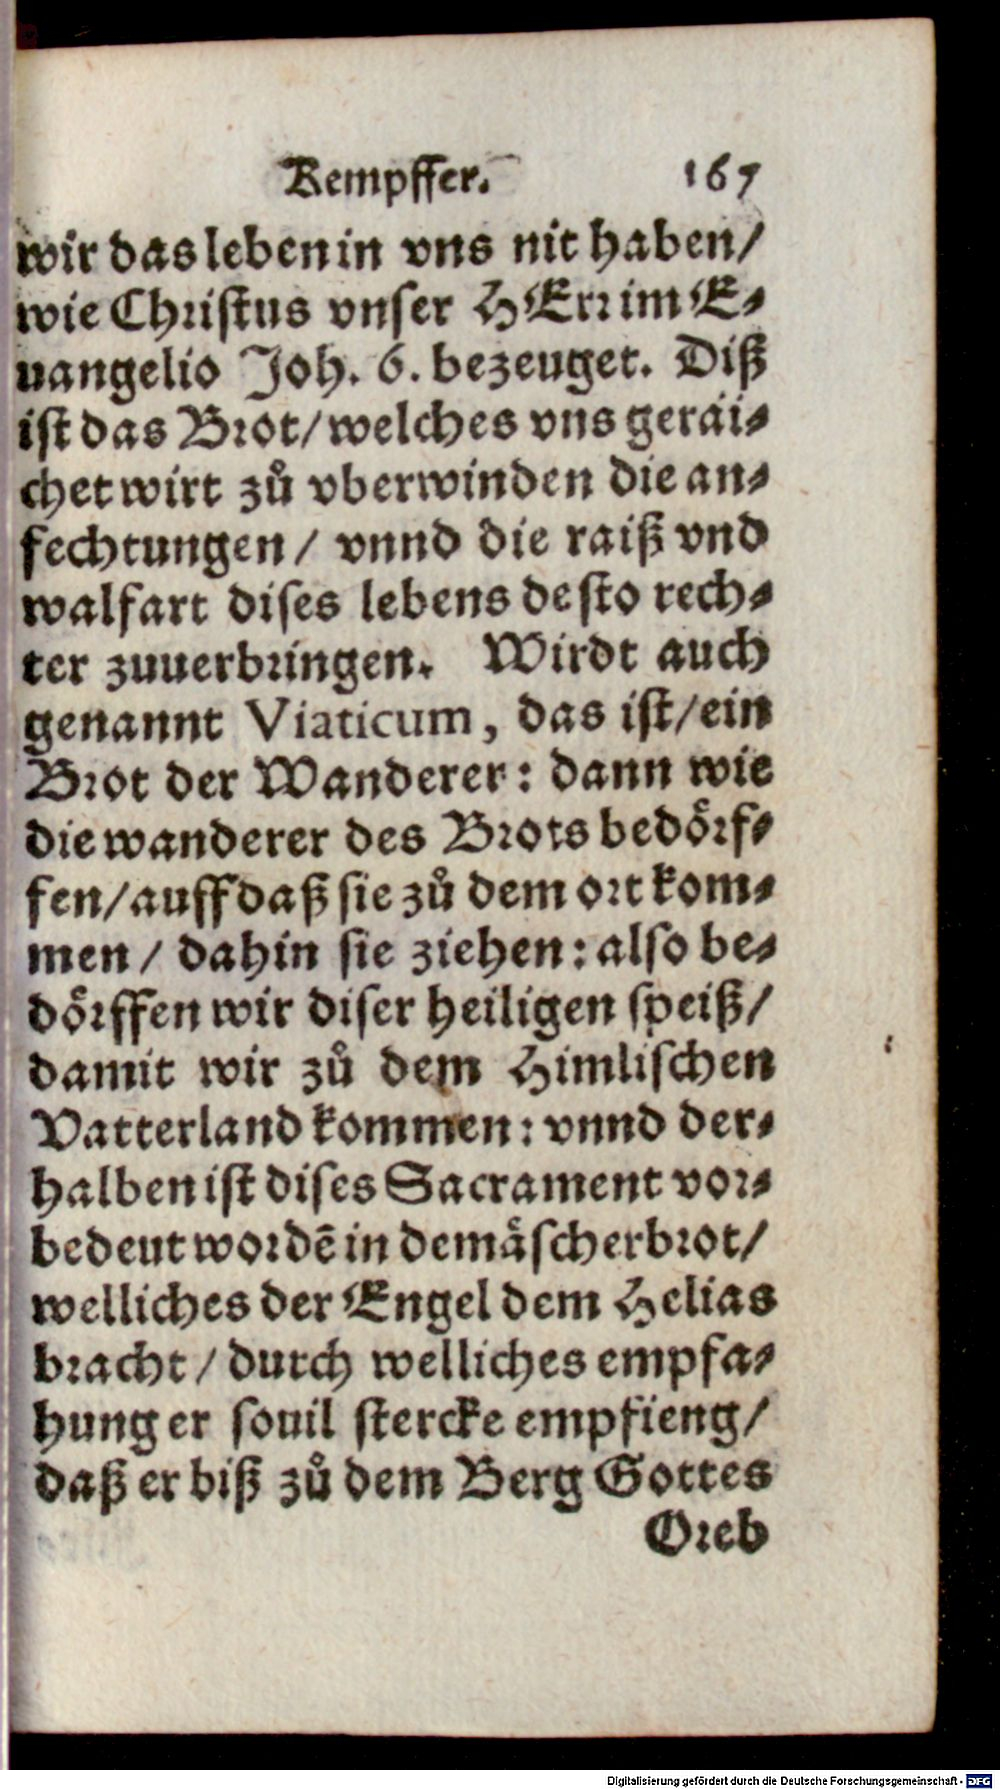 Kempffer. 167
wir das leben in vns nit haben/
wie Christus vnser HErr im E-
uangelio Joh. 6. bezeuget. Diß
ist das Brot/ welches vns geräi-
chet wirt zů vberwinden die an-
fechtungen/ vnnd die raiß vnd
walfart dises lebens desto rech-
ter zuuerbringen. Wirdt auch
genannt Viaticum, das ist/ ein
Brot der Wanderer: dann wie
die wanderer des Brots bedörf-
fen/ auff daß sie zů dem ort kom-
men/ dahin sie ziehen: also be-
dörffen wir diser heiligen speiß/
damit wir zů dem Himlischen
Vatterland kommen: vnnd der-
halben ist dises Sacrament vor-
bedeut wordē in dem äscherbrot/
welliches der Engel dem Helias
bracht/ durch welliches empfa-
hung er souil stercke empfieng/
daß er biß zů dem Berg Gottes
Oreb
Digitalisierung gefördert durch die Deutsche Forschungsgemeinschaft - DFG